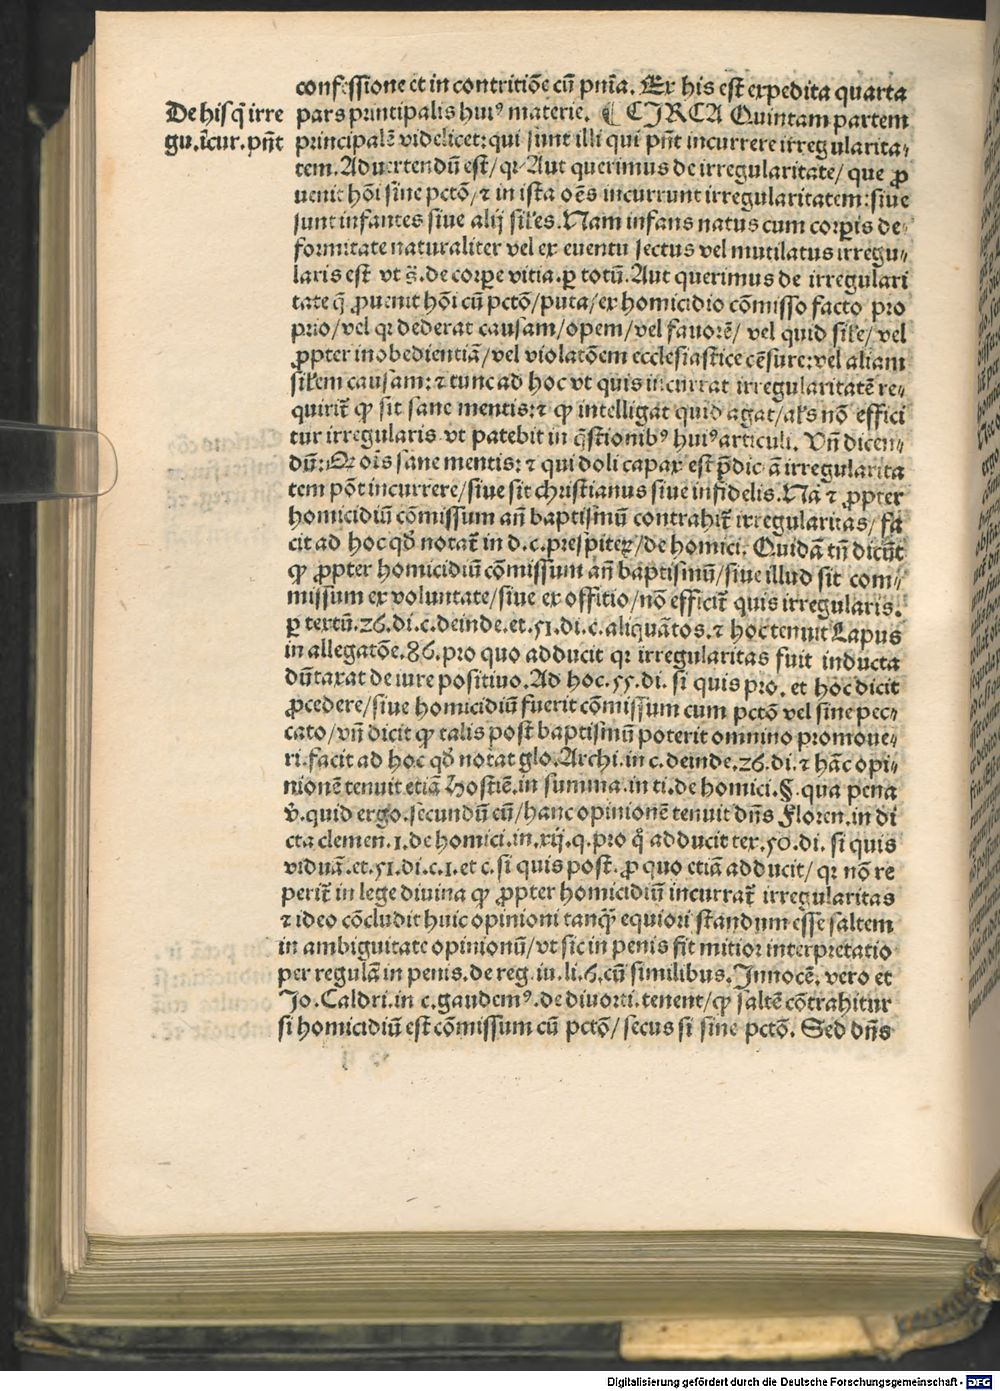 confessione et in contritiōe cū pnīa. Ex his est expedita quarta
De hisq̄ irre
gu. īcur. pn̄t
pars principalis huiꝰ materie. ¶ CIRCA Quintam partem
principalē videlicet: qui sunt illi qui pn̄t incurrere irregularita⸗
tem. Aduertendū est/ qꝛ Aut querimus de irregularitate/ que ꝓ
uenit hōi sine pctō/ ⁊ in ista oēs incurrunt irregularitatem: siue
sunt infantes siue alij sil'es. Nam infans natus cum corꝑis de⸗
formitate naturaliter vel ex euentu sectus vel mutilatus irregu⸗
laris est vt s̄. de corꝑe vitia. ꝑ totū. Aut querimus de irregulari
tate q̄ ꝓuenit hōi cū pctō/ puta/ ex homicidio cōmisso facto pro
prio/ vel qꝛ dederat causam/ opem/ vel fauorē/ vel quid sil'e/ vel
ꝓpter inobedientiā/ vel violatōem ecclesiastice cēsure: vel aliam
sil'em causam: ⁊ tunc ad hoc vt quis incurrat irregularitatē re⸗
quirit̄ ꝙ sit sane mentis: ⁊ ꝙ intelligat quid agat/ al's nō effici
tur irregularis vt patebit in q̄stionibꝰ huiꝰ articuli. Vn̄ dicen⸗
dū: Qꝛ oīs sane mentis: ⁊ qui doli capax est p̄dictā irregularita
tem pōt incurrere/ siue sit christianus siue infidelis. Nā ⁊ ꝓpter
homicidiū cōmissum an̄ baptismū contrahit̄ irregularitas/ fa
cit ad hoc qđ notat̄ in d. c. prespiteꝝ/ de homici. Quidā tn̄ dicūt
ꝙ ꝓpter homicidiū cōmissum an̄ baptismū/ siue illud sit com⸗
missum ex voluntate/ siue ex offitio/ nō efficit̄ quis irregularis.
ꝑ textū. 26. di. c. deinde. et. 51. di. c. aliquātos. ⁊ hoc tenuit Lapus
in allegatōe. 86. pro quo adducit qꝛ irregularitas fuit inducta
dūtaxat de iure positiuo. Ad hoc. 55. di. si quis pro. et hoc dicit
ꝓcedere/ siue homicidiū fuerit cōmissum cum pctō vel sine pec⸗
cato/ vn̄ dicit ꝙ talis post baptismū poterit omnino promoue⸗
ri. facit ad hoc qđ notat glo. Archi. in c. deinde. 26. di. ⁊ hāc opi⸗
nionē tenuit etiā Hostiē. in summa. in ti. de homici. §. qua pena
v̄. quid ergo. secundū eū/ hanc opinionē tenuit dn̄s Floren. in di
cta clemen. 1. de homici. in. xij. q. pro q° adducit tex. 50. di. si quis
viduā. et. 51. di. c. 1. et c. si quis post. ꝓ quo etiā adducit/ qꝛ nō re
perit̄ in lege diuina ꝙ ꝓpter homicidiū incurrat̄ irregularitas
⁊ ideo cōcludit huic opinioni tanq̄ꝫ equiori standum esse saltem
in ambiguitate opinionū/ vt sic in penis fit mitior interpretatio
per regulā in penis. de reg. iu. li. 6. cū similibus. Innocē. vero et
Jo. Caldri. in c. gaudemꝰ. de diuorti. tenent/ ꝙ saltē cōtrahitur
si homicidiū est cōmissum cū pctō/ secus si sine pctō. Sed dn̄s
Digitalisierung gefördert durch die Deutsche Forschungsgemeinschaft - DFG